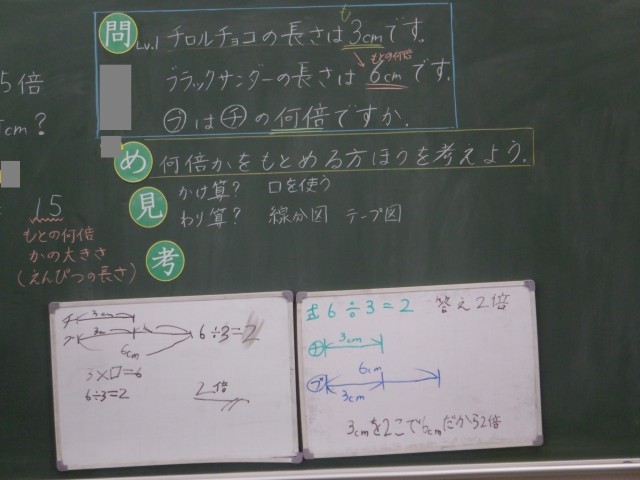 問 Lv.1 チロルチョコの長さは3cmです。
も
もとの何倍
ブラックサンダーの長さは6cmです。
㋫は㋠の何倍ですか。
め 何倍かをもとめる方ほうを考えよう。
見 かけ算? 口を使う
わり算? 線分図 テープ図
考
5倍
cm?
15
もとの何倍
かの大きさ
(えんぴつの長さ)
3cm
3cm
6cm
6÷3=2
3×□=6
6÷3=2
2倍
式 6÷3=2 答え2倍
チ 3cm
ブ 6cm
3cm
3cmを2こで6cmだから2倍